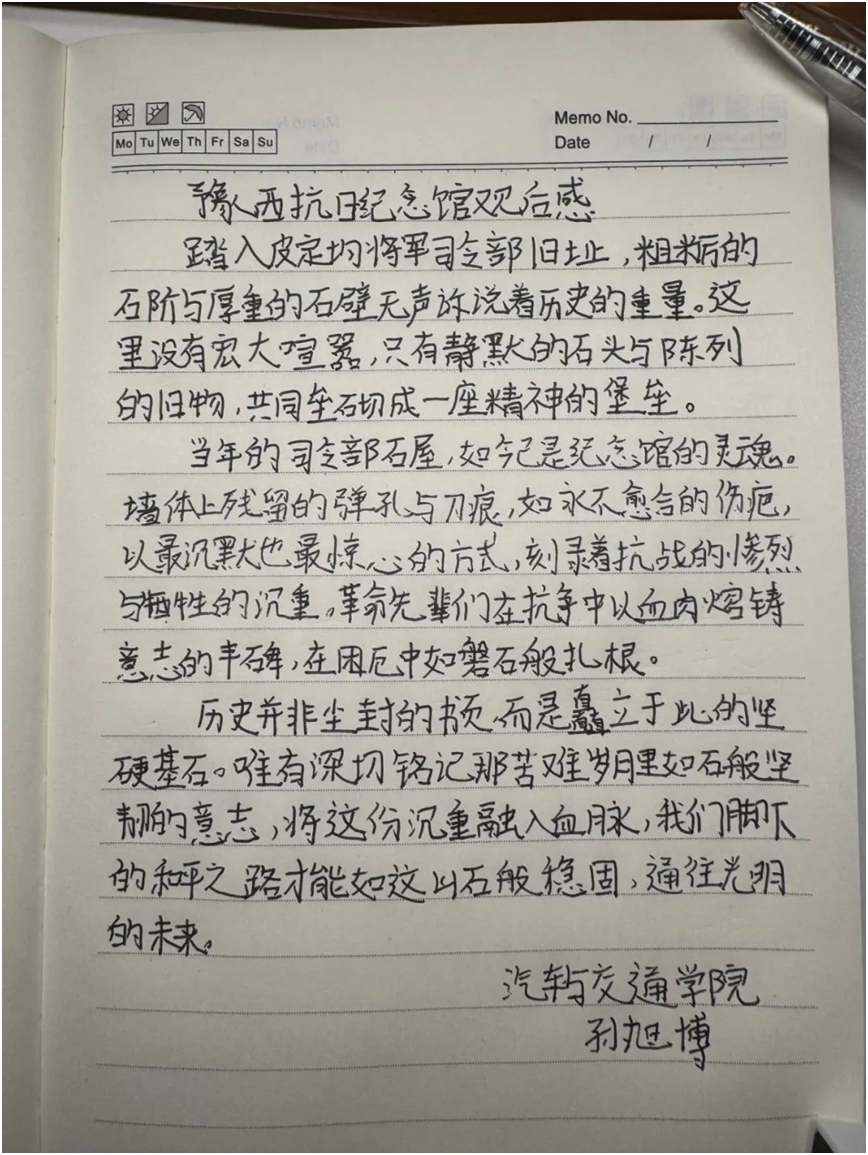 Memo No.
Mo Tu We Th Fr Sa Su
Date / /
豫西抗日纪念馆观后感
踏入皮定均将军司令部旧址，粗粝的
石阶与厚重的石壁无声诉说着历史的重量。这
里没有宏大喧嚣，只有静默的石头与陈列
的旧物，共同垒石切成一座精神的堡垒。
当年的司令部石屋，如今已是纪念馆的灵魂。
墙体上残留的弹孔与刀痕，如永不愈合的伤疤，
以最沉默也最惊心的方式，刻录着抗战的惨烈
与牺牲的沉重。革命先辈们在抗争中以血肉熔铸
意志的丰碑，在困厄中如磐石般扎根。
历史并非尘封的书页，而是矗立于此的坚
硬基石。唯有深切铭记那苦难岁月里如石般坚
韧的意志，将这份沉重融入血脉，我们脚下
的和平之路才能如这山石般稳固，通往光明
的未来。
汽车与交通学院
孙旭博